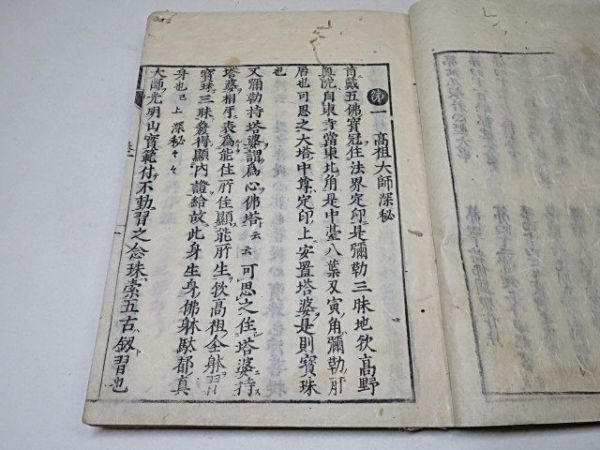 第一 高祖大師深秘
首戴五佛寶冠住法界定印是彌勒三昧地欤高野
奥院自東寺當東北角是中臺八葉又寅角彌勒所
居也可思之大塔中尊定印上安置塔婆是則寶珠
也
又彌勒持塔婆謂為心佛塔云云可思之住塔婆持
塔婆相承表為能住所住顯能所生欤高祖全躰習
寶珠三昧矣得顯內證給故此身生身佛躰歟都真
身也已上深秘々々
大師光明山實範付不動習之念珠索五古釼習也